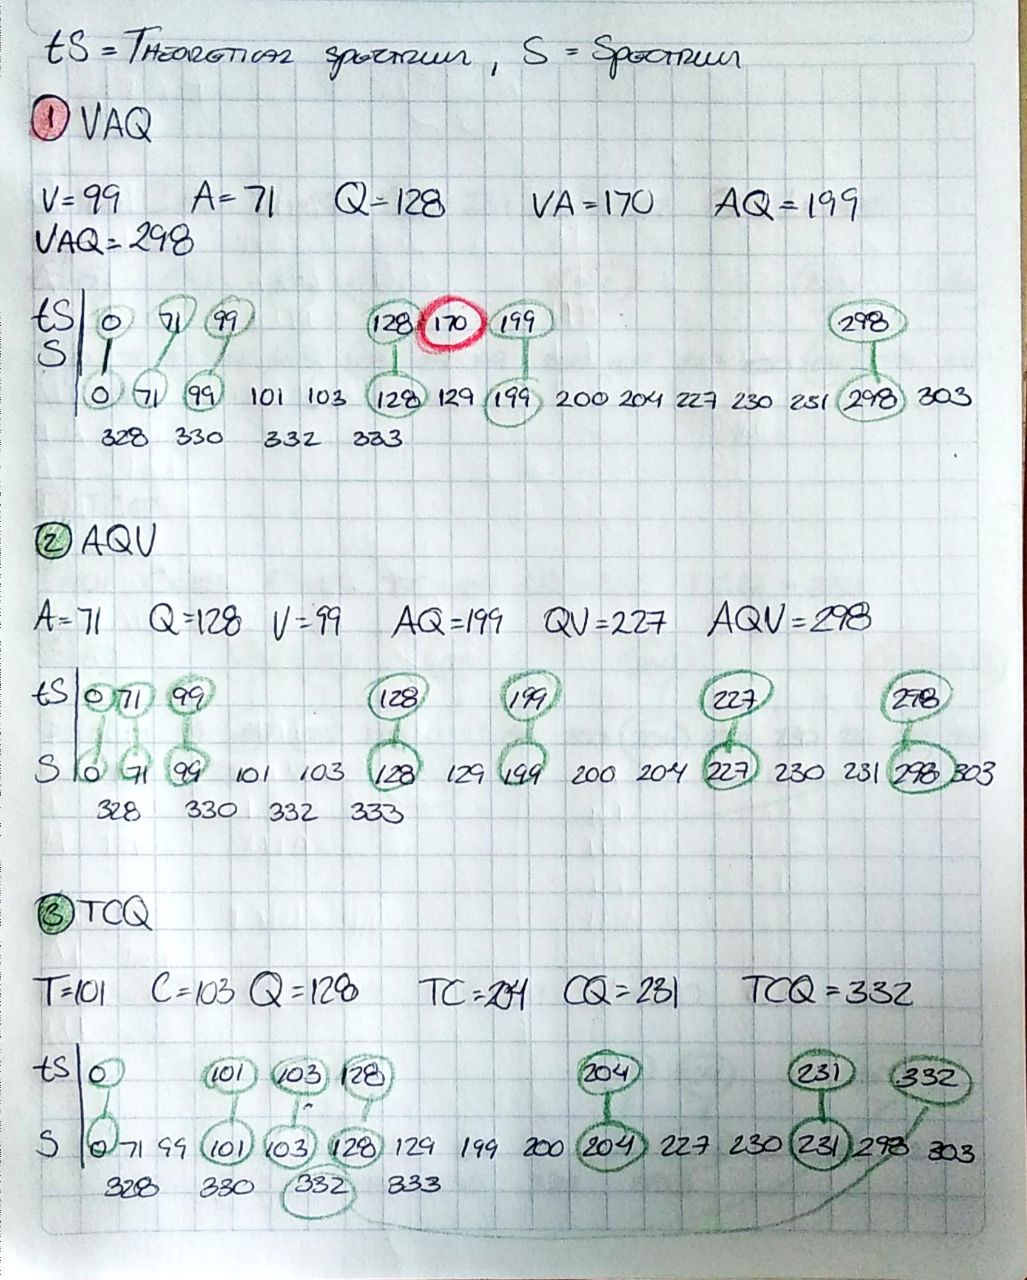 tS = THEORETICAL SPECTRUM, S = SPECTRUM
1 VAQ
V=99 A=71 Q=128 VA=170 AQ=199
VAQ=298
tS 0 71 99 128 170 199 298
S
0 71 99 101 103 128 129 199 200 204 227 230 231 298 303
328 330 332 333
2 AQV
A=71 Q=128 V=99 AQ=199 QV=227 AQV=298
tS 0 71 99 128 199 227 298
S 0 71 99 101 103 128 129 199 200 204 227 230 231 298 303
328 330 332 333
3 TCQ
T=101 C=103 Q=128 TC=204 CQ=231 TCQ=332
tS 0 101 103 128 204 231 332
S 0 71 99 101 103 128 129 199 200 204 227 230 231 298 303
328 330 332 333